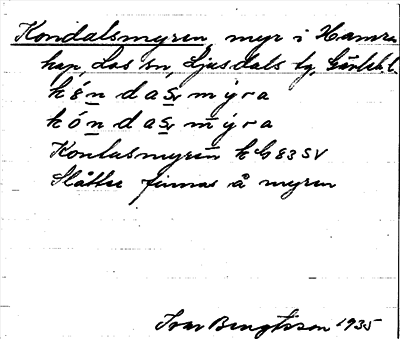 Kondalsmyren myr i Hamra
kap, Los sn, Ljusdals tg, Gävleb. l.
kóndasmýra
kóndasmýra
Kontasmyren k G 83 SV
Slåtter finnas å myren
Ivar Bengtsson 1935